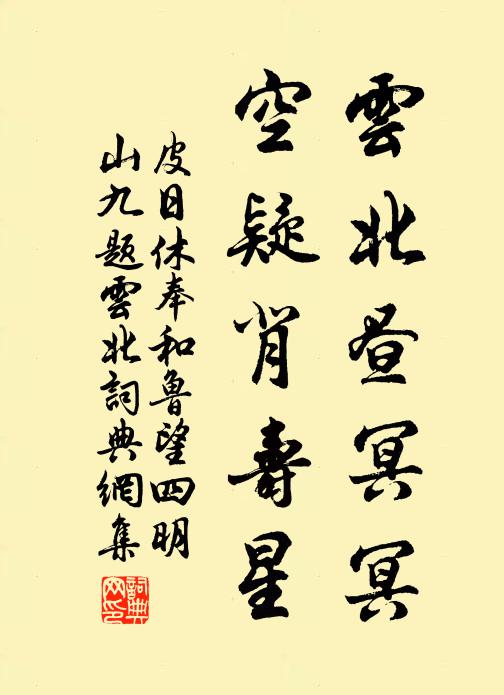 雲北昼冥冥
空疑背壽星
皮日休奉和魯望四明
山九题雲北詞典網集